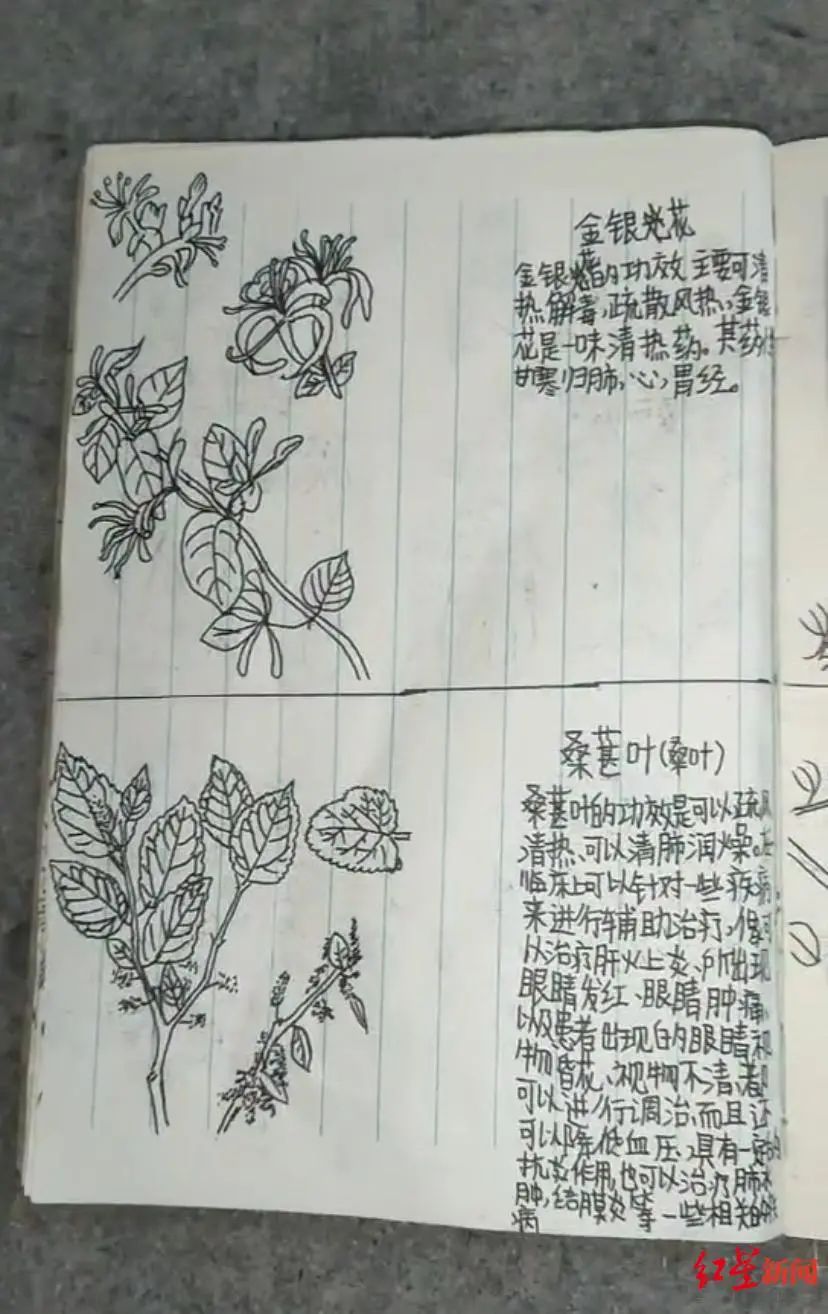 金银花
金银花的功效主要可清
热解毒,疏散风热,金银
花是一味清热药。其药性
甘寒归肺,心,胃经。
桑葚叶(桑叶)
桑葚叶的功效是可以疏风
清热、可以清肺润燥。在
临床上可以针对一些疾病,
来进行辅助治疗,像可
以治疗肝火上炎、所出现
眼睛发红、眼睛肿痛,
以及患者出现的眼睛视
物昏花、视物不清,都
可以进行调治,而且还
可以降低血压,具有一定的
抗炎作用,也可以治疗肺水
肿,结膜炎等一些相关的
病
红星新闻